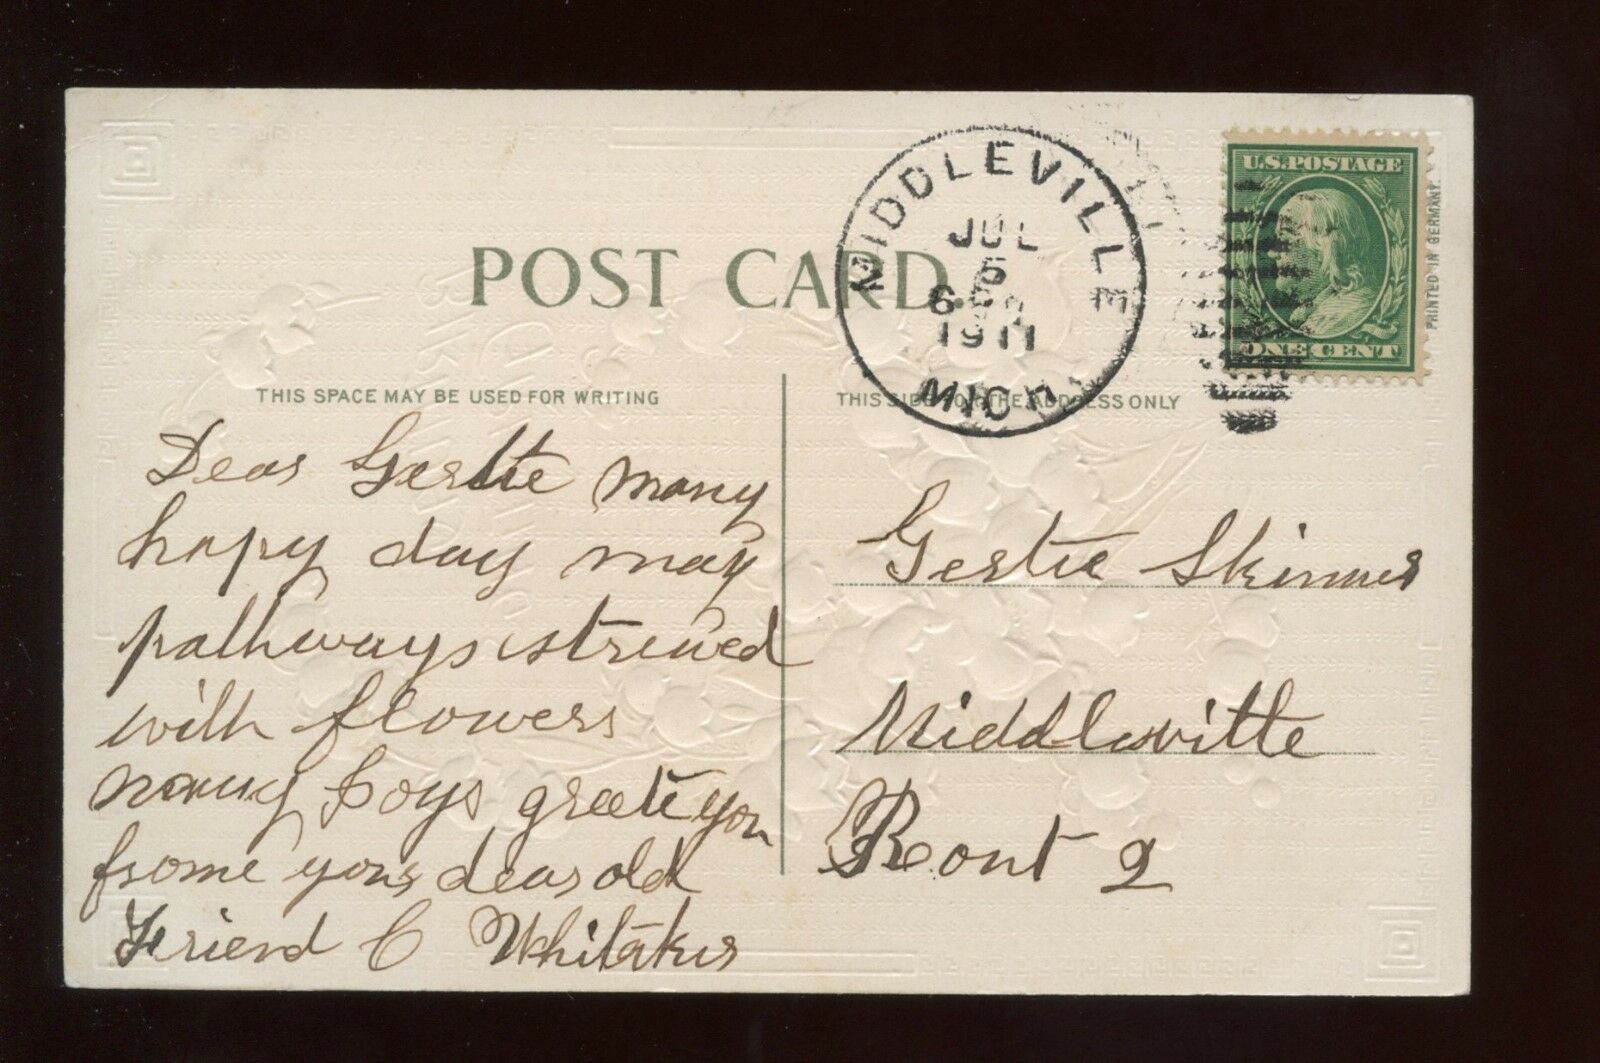 POST CARD.
MIDDLEVILLE
JUL
5
6
1911
MICH.
U.S. POSTAGE
ONE CENT
PRINTED IN GERMANY.
THIS SPACE MAY BE USED FOR WRITING
THIS SIDE FOR THE ADDRESS ONLY
Dear Gertie many
happy day may
pathways strewed
with flowers
many boys greete you
frome your dear old
Friend C Whitaker
Gertie Skinner
Middleville
Rout 2